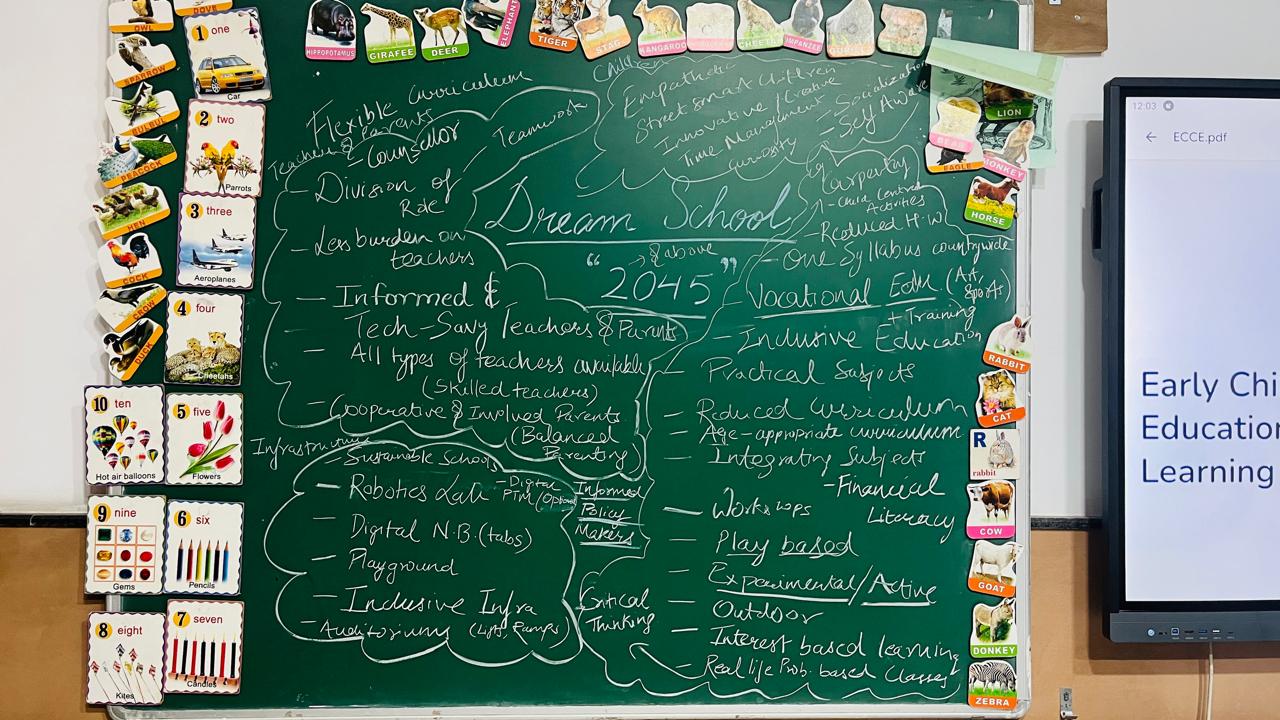 HIPPOPOTAMUS
GIRAFEE
DEER
ELEPHANT
TIGER
STAG
KANGAROO
OWL
DOVE
SPARROW
BULBUL
PEACOCK
HEN
COCK
CROW
DUCK
1 one
Car
2 two
Parrots
3 three
Aeroplanes
4 four
Cheetahs
10 ten
Hot air balloons
5 five
Flowers
9 nine
Gems
6 six
Pencils
8 eight
Kites
7 seven
Candles
Dream School
"2045"
→ & above
Flexible curriculum
Teachers & Parents
- Counsellor
Teamwork
- Division of
Role
- Less burden on
teachers
- Informed &
Tech-Savy Teachers & Parents
- All types of teachers available
(Skilled teachers)
- Cooperative & Involved Parents
(Balanced
Parenting)
Infrastructure
- Sustainable School
- Robotics Lab
- Digital
PTM (Optional)
- Digital N.B. (tabs)
- Playground
- Inclusive Infra
(Lifts, Ramps)
- Auditoriums
Informed
Policy
Makers
Children
Empathetic
Street smart children
Innovative / Creative
Time Management
Curiosity
- Socialization
- Self Aware
eg
Carpentry
- Child Centred
Activities
- Reduced H.W
- One Syllabus countrywide
- Vocational Edu. (Art,
Sports)
+ Training
- Inclusive Education
- Practical Subjects
- Reduced curriculum
- Age-appropriate curriculum
- Integrative Subjects
- Financial
Literacy
- Worksops
- Play based
- Experimental/Active
- Outdoor
- Interest based learning
- Real life Prob. based Classes
Critical
Thinking
LION
BEAR
MONKEY
EAGLE
HORSE
RABBIT
CAT
R
rabbit
COW
GOAT
DONKEY
ZEBRA
12:03
← ECCE.pdf
Early Chi
Education
Learning